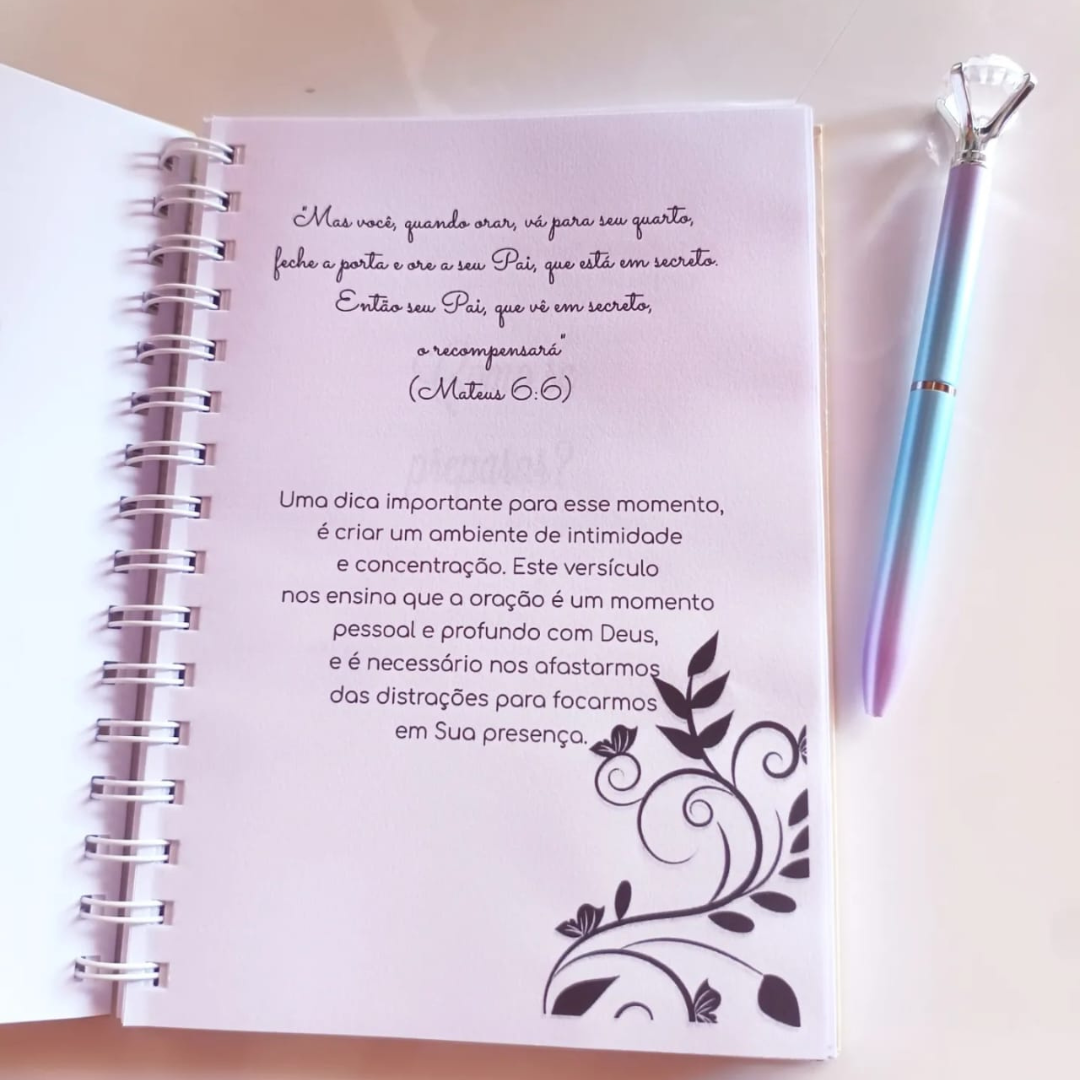 "Mas você, quando orar, vá para seu quarto,
feche a porta e ore a seu Pai, que está em secreto.
Então seu Pai, que vê em secreto,
o recompensará"
(Mateus 6:6)
Uma dica importante para esse momento,
é criar um ambiente de intimidade
e concentração. Este versículo
nos ensina que a oração é um momento
pessoal e profundo com Deus,
e é necessário nos afastarmos
das distrações para focarmos
em Sua presença.